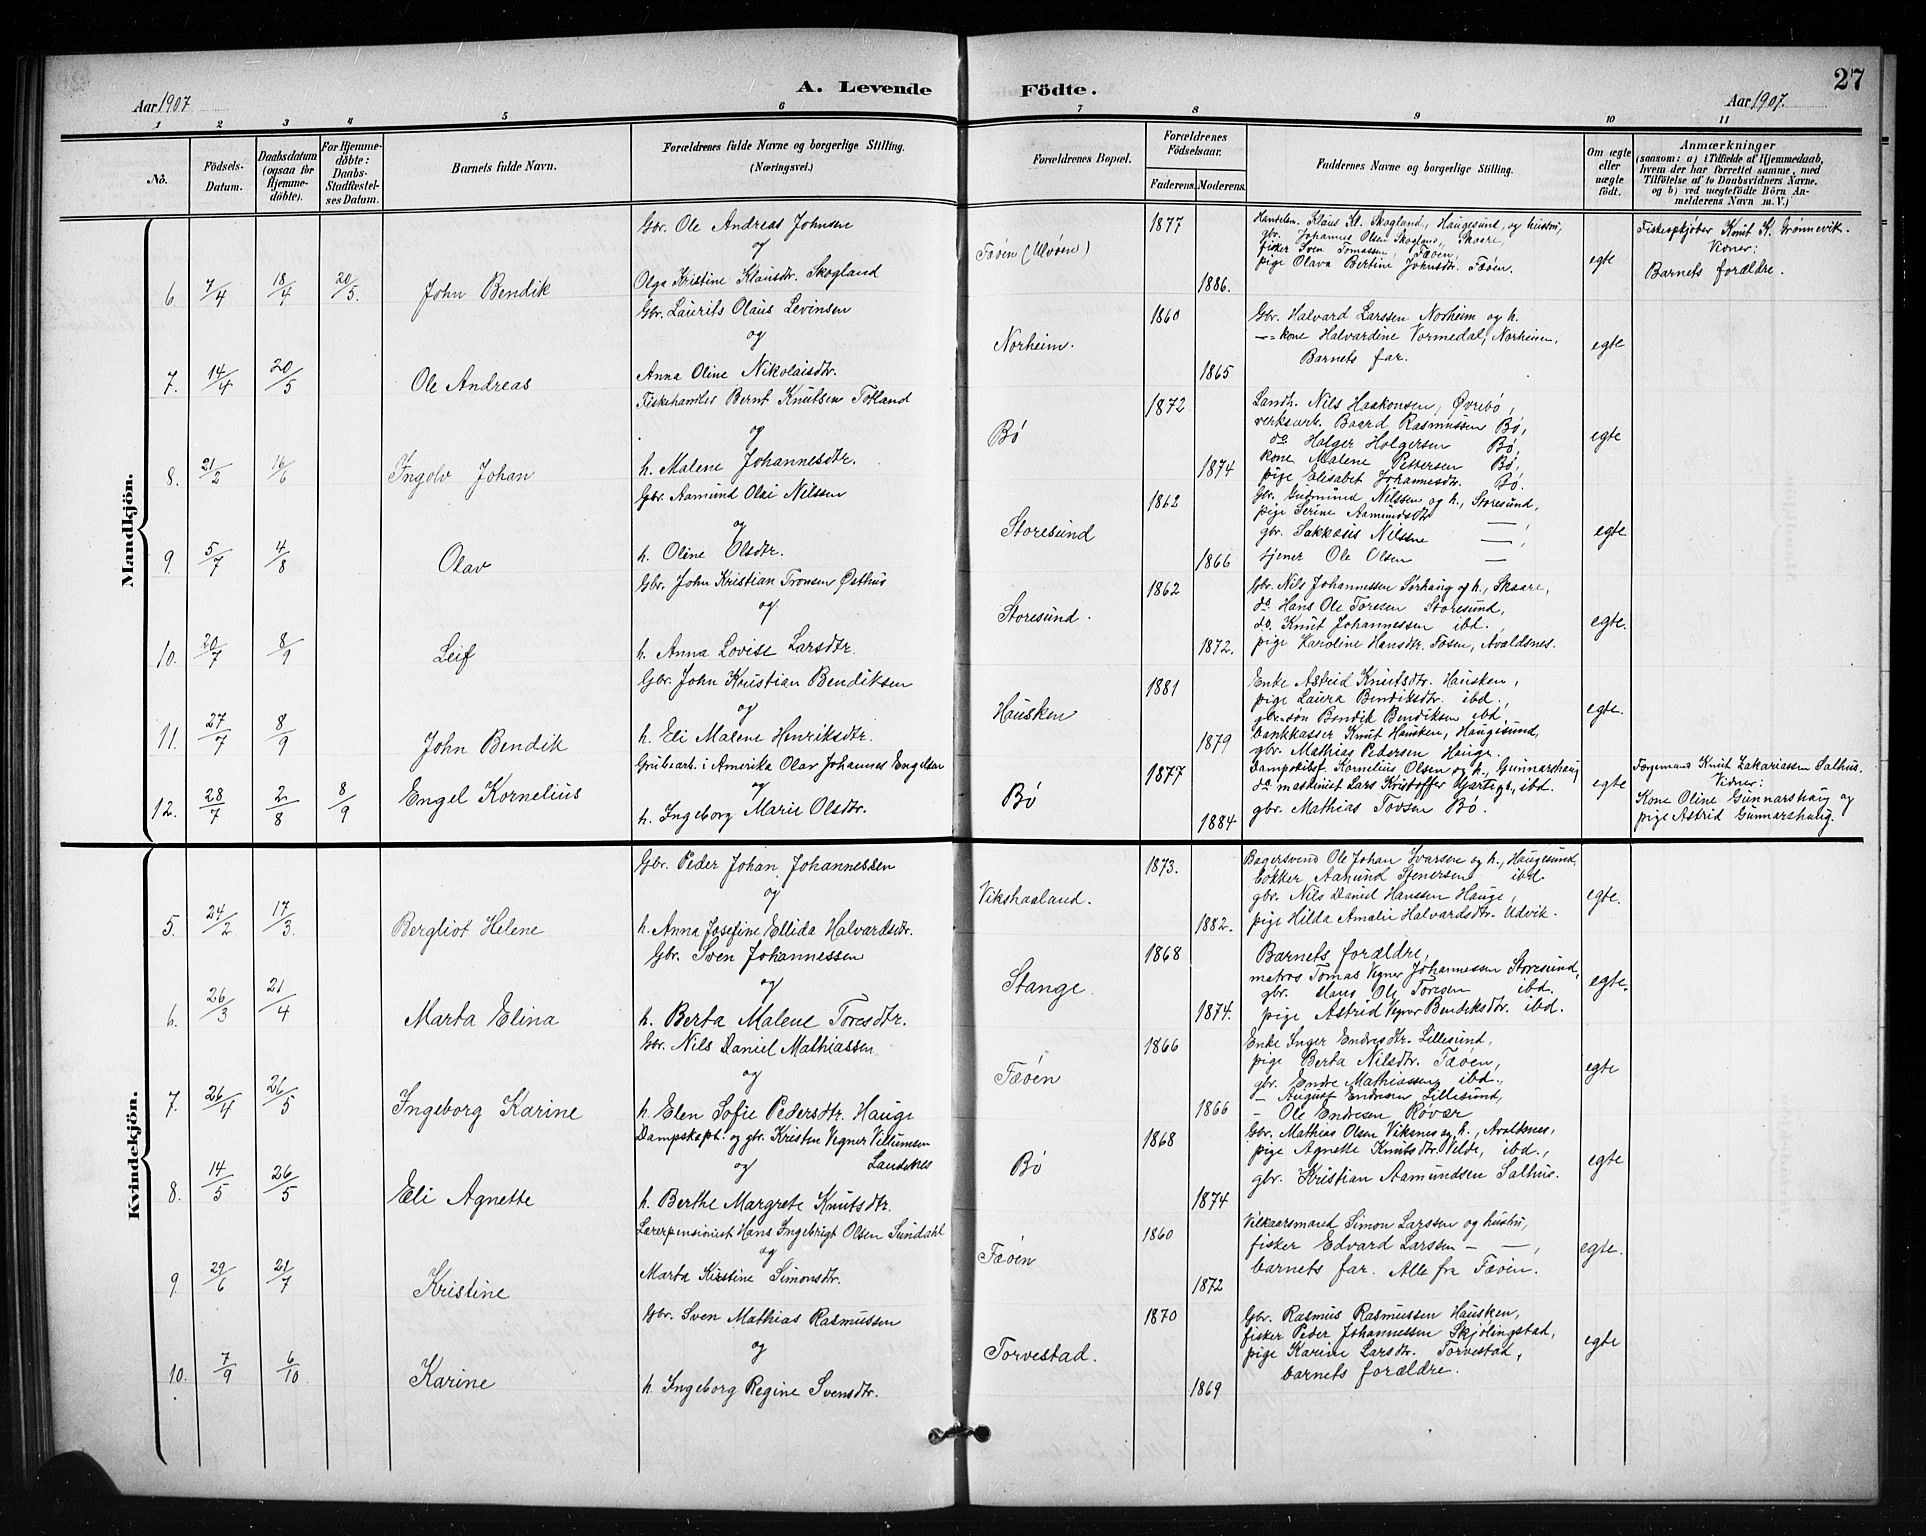 27
A. Levende Födte.
Aar 1907
Aar 1907.
1 2 3 4 5 6 7 8 9 10 11
No.
Födsels-Datum.
Daabsdatum (ogsaa for Hjemmedöbte).
For Hjemmedöbte: Daabs-Stadfæstelses Datum.
Barnets fulde Navn.
Forældrenes fulde Navne og borgerlige Stilling. (Næringsvei.)
Forældrenes Bopæl.
Forældrenes Födselsaar.
Faderens. Moderens.
Faddernes Navne og borgerlige Stilling.
Om ægte eller uægte födt.
Anmærkninger
(saasom: a) i Tilfælde af Hjemmedaab, hvem der har forrettet samme, med Tilföielse af to Daabsvidners Navne, og b) ved uægtefödte Börn Anmelderens Navn m. V.)
Mandkjön.
6. 7/4 18/4 20/5. John Bendik
Gbr. Ole Andreas Johnsen
og
Olga Kristine Klausdtr. Skogland
Fæøen (Ulvøen)
1877
1886.
Handelsm. Klaus Kl. Skogland, Haugesund, og hustru,
gbr. Johannes Olsen Skogland, Skaare,
fisker Sven Tomassen, Fæøen,
pige Olava Bertine Johnsdtr. Fæøen.
egte
Fiskeopkjøber Knut K. Grønnevik.
Vidner:
Barnets forældre.
7. 14/4 20/5 Ole Andreas
Gbr. Laurits Olaus Levinsen
og
Anna Oline Nikolaisdtr.
Norheim.
1860
1865
Gbr. Halvard Larssen Norheim og h.
— kone Halvardine Vormedal, Norheim,
Barnets far.
egte
8. 21/2 16/6 Ingolv Johan
Fiskehandler Bernt Knutsen Totland
og
h. Malene Johannesdtr.
Bø
1872
1874
Landh. Nils Haakonsen, Øvrebø,
verksarb. Baard Rasmussen Bø,
do Holger Holgersen Bø,
kone Malene Pettersen Bø,
pige Elisabet Johannesdtr. Bø.
egte
9. 5/7 4/8 Olav
Gbr. Aamund Olai Nilssen
og
h. Oline Olsdtr.
Storesund
1862
1866
Gbr. Gudmund Nilssen og h., Storesund,
pige Serine Aamundsdtr —
gbr. Sakkæus Nilssne — ,
tjener Ole Olsen —
egte
10. 20/7 8/9 Leif
Gbr. John Kristian Tronsen Østhus
og
h. Anna Lovise Larsdtr.
Storesund.
1862
1872.
Gbr. Nils Johannessen Sørhaug og h., Skaare,
do Hans Ole Toresen Storesund,
do. Knut Johannessen ibd.,
pige Karoline Hansdtr. Fosen, Avaldsnes.
egte.
11. 27/7 8/9 John Bendik
Gbr. John Kristian Bendiksen
og
h. Eli Malene Henriksdtr.
Hausken
1881
1879
Enke Astrid Knutsdtr. Hausken,
pige Laura Bendiksdtr. ibd,
gbr.søn Bendik Bendiksen ibd,
bankkasser Knut Hausken, Haugesund,
gbr. Mathias Pedersen Hauge.
egte.
12. 28/7 2/8 8/9 Engel Kornelius
Grubearb. i Amerika Olav Johannes Engelsen
og
h. Ingeborg Marie Olsdtr.
Bø
1877
1884
Dampskibsf. Kornelius Olsen og h., Gunnarshaug
do maskinist Lars Kristoffer ibd.
gbr. Mathias Tovsen Bø.
egte
Færgemand Knut Zakariassen Salhus.
Vidner:
Kone Oline Gunnarshaug og
pige Astrid Gunnarshaug.
Kvindekjön.
5. 24/2 17/3. Bergliot Helene
Gbr. Peder Johan Johannessen
og
h. Anna Josefine Ellida Halvardsdtr.
Vikshaaland.
1873.
1882.
Bagersvend Ole Johan Ivarsen og h., Haugesund,
bøkker Aamund Stenersen ibd.
gbr. Nils Daniel Hanssen Hauge,
pige Hilda Amalie Halvardsdtr. Udvik.
egte.
6. 26/3 21/4 Marta Elina
Gbr. Sven Johannessen
og
h. Berta Malene Toresdtr.
Stange.
1868
1874.
Barnets forældre,
matros Tomas Vigner Johannessen Storesund,
gbr. Hans Ole Toresen ibd.
pige Astrid Vigner Bendiksdtr. ibd.
egte.
7. 26/4 26/5 Ingeborg Karine
Gbr. Nils Daniel Mathiassen
og
h. Elen Sofie Pedersdtr. Hauge
Fæøen
1866
1866
Enke Inger Endresdtr. Lillesund,
pige Berta Nilsdtr. Fæøen,
gbr. Endre Mathiassen ibd.,
— August Endresen Lillesund,
- Ole Endresen Røvær
egte
8. 14/5 26/5 Eli Agnette
Dampskapt. og gbr. Kristen Vigner Villumsen
og Landenes
h. Berthe Margrete Knutsdtr.
Bø
1868
1874
Gbr. Mathias Olsen Viksnes og h., Avaldsnes,
pige Agnette Knutsdtr. Velde, ibd.,
gbr. Kristian Aamundsen Salhus.
egte
9. 29/6 21/7 Kristine
Lærerpensionist Hans Ingebrigt Olsen Sundahl
og
Marta Kirstine Simonsdtr.
Fæøen
1860
1872
Vilkaarsmand Simon Larssen og hustru,
fisker Edvard Larssen — — ,
barnets far. Alle fra Fæøen.
egte.
10. 7/9 6/10 Karine
Gbr. Sven Mathias Rasmussen
og
h. Ingeborg Regine Svensdtr.
Torvestad.
1870
1869
Gbr. Rasmus Rasmussen Hausken,
fisker Peder Johannessen Skjølingstad,
pige Karine Larsdtr. Torvestad,
barnets forældre.
egte